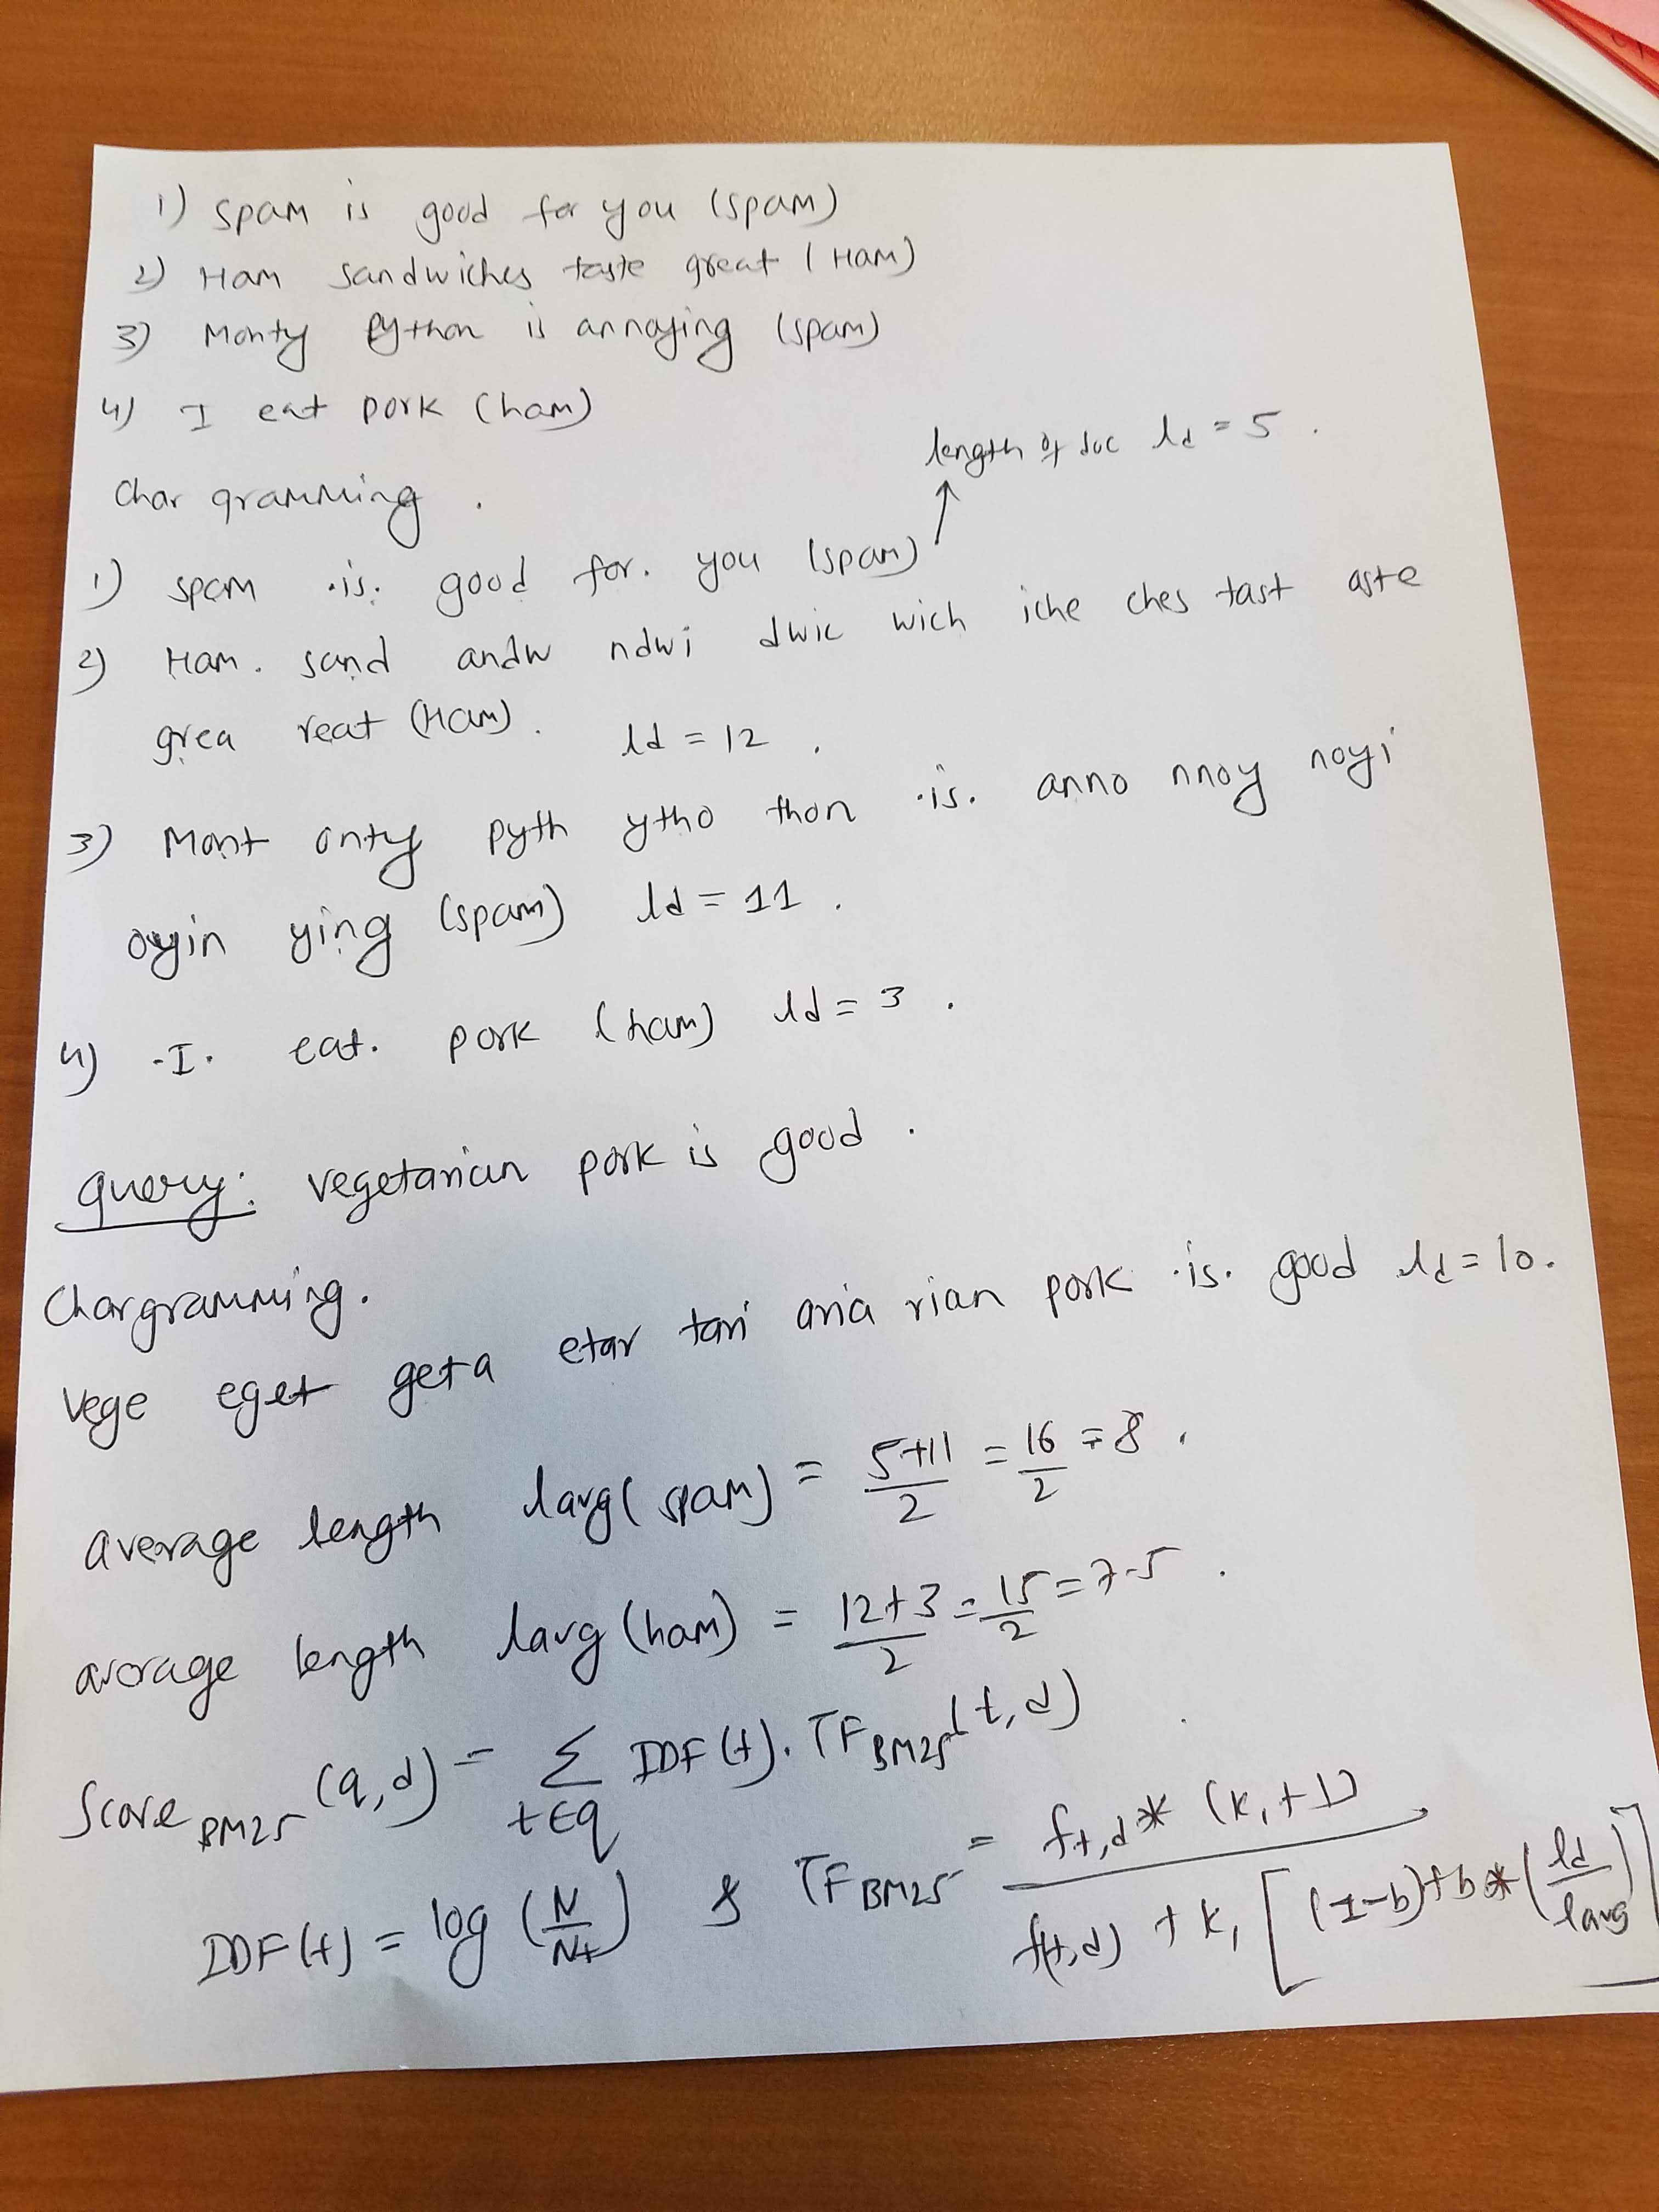 1) spam is good for you (spam)
2) Ham sandwiches taste great (HAM)
3) Monty Python is annoying (spam)
4) I eat pork (ham)
length of doc ld = 5 .
Char gramming .
1) spam .is. good for. you (spam)
2) Ham. sand andw ndwi dwic wich iche ches tast aste
grea reat (Ham). ld = 12 .
3) Mont onty pyth ytho thon .is. anno nnoy noyi
oyin ying (spam) ld = 11 .
4) .I. eat. pork (ham) ld = 3 .
query: vegetarian pork is good .
Chargramming.
vege eget geta etar tari aria rian pork .is. good ld = 10.
average length lavg(spam) = 5+11/2 = 16/2 = 8 .
average length lavg(ham) = 12+3/2 = 15/2 = 7.5 .
Score BM25 (q,d) = Σ t∈q IDF(t). TF BM25 (t,d)
IDF(t) = log (N/Nt) & TF BM25 = ft,d * (k1+1) / f(t,d) + k1 [(1-b)+b*(ld/lavg)]